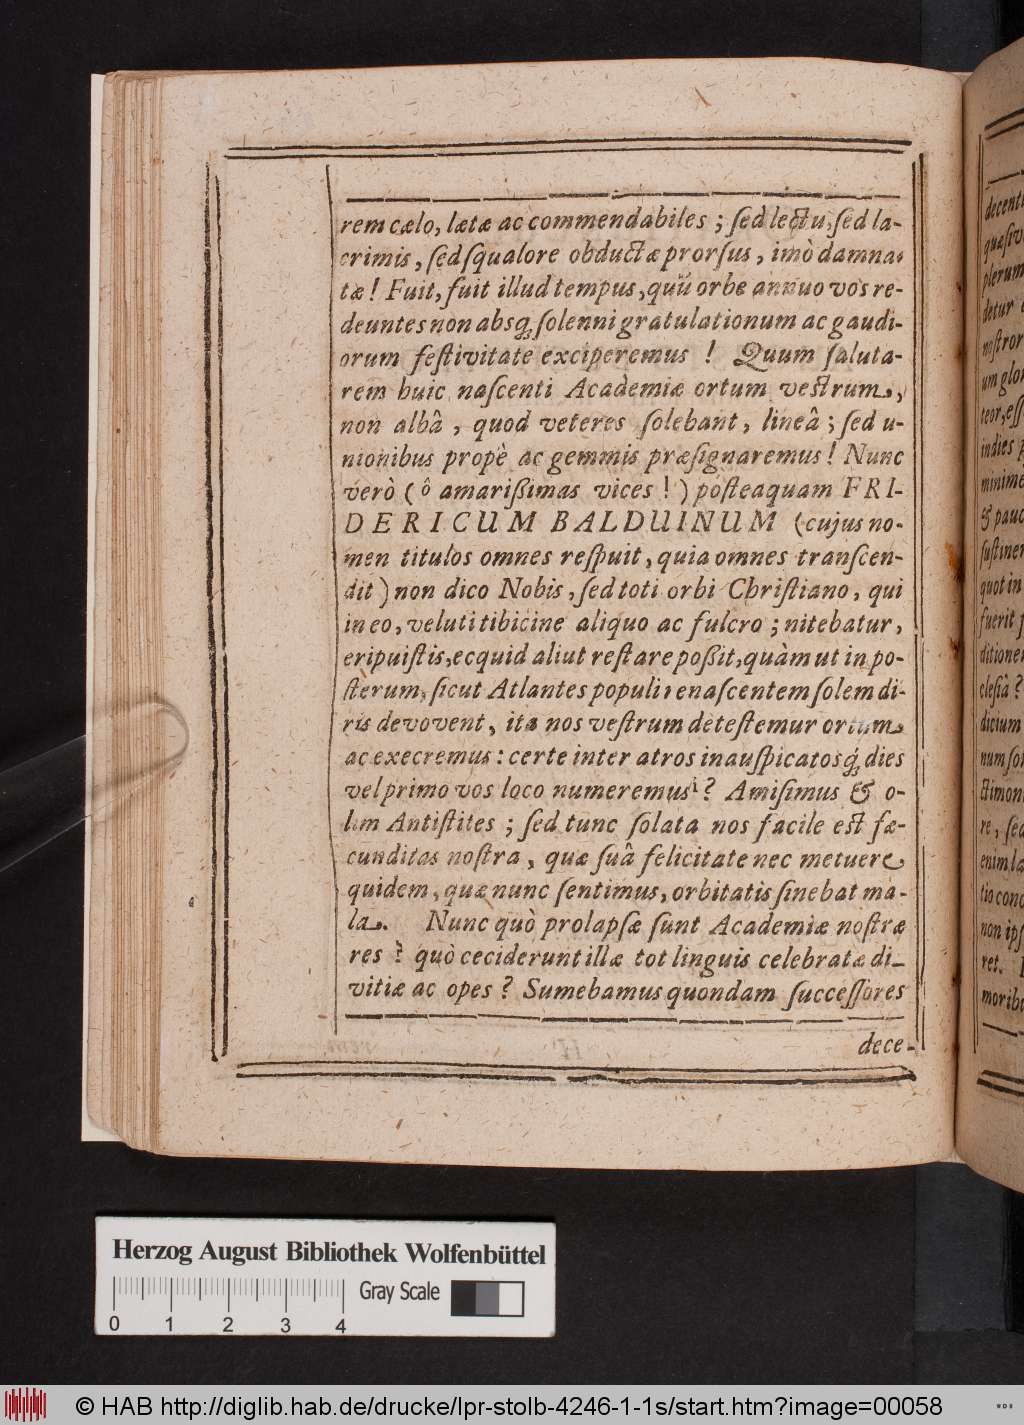 rem cælo, lætæ ac commendabiles ; ſed lectu, ſed la-
crimis, ſed ſqualore obductæ prorſus, imò damna-
tæ! Fuit, fuit illud tempus, quũ orbe annuo vos re-
deuntes non absq́; ſolenni gratulationum ac gaudi-
orum feſtivitate exciperemus ! Quum ſaluta-
rem huic naſcenti Academiæ ortum veſtrum,
non albâ, quod veteres ſolebant, lineâ ; ſed u-
nionibus propè ac gemmis præſignaremus! Nunc
verò (ô amarißimas vices !) poſteaquam FRI-
DERICUM BALDUINUM (cujus no-
men titulos omnes reſpuit, quia omnes tranſcen-
dit) non dico Nobis, ſed toti orbi Chriſtiano, qui
in eo, veluti tibicine aliquo ac fulcro ; nitebatur,
eripuiſtis, ecquid aliut reſtare poßit, quàm ut in po-
ſterum, ſicut Atlantes populi renaſcentem ſolem di-
ris devovent, ita nos veſtrum deteſtemur ortum
ac execremus : certe inter atros inauſpicatosq́; dies
vel primo vos loco numeremus? Amiſimus & o-
lim Antiſtites ; ſed tunc ſolata nos facile eſt fæ-
cunditas noſtra, quæ ſuâ felicitate nec metuere
quidem, quæ nunc ſentimus, orbitatis ſinebat ma-
la. Nunc quò prolapſæ ſunt Academiæ noſtræ
res ? quò ceciderunt illæ tot linguis celebratæ di-
vitiæ ac opes ? Sumebamus quondam ſucceſſores
dece-
decent
quæſiv
plerum
detur
noſtror
um glor
teor, eſſ
indies p
minimè
& pauc
ſuſtiner
quot in
fuerit
ditione
cleſiâ ?
dicium
num ſol
ctimoni
re, ſed
enim la
tio conc
non ipſ
ret.
moribu
Herzog August Bibliothek Wolfenbüttel
Gray Scale
0 1 2 3 4
© HAB http://diglib.hab.de/drucke/lpr-stolb-4246-1-1s/start.htm?image=00058